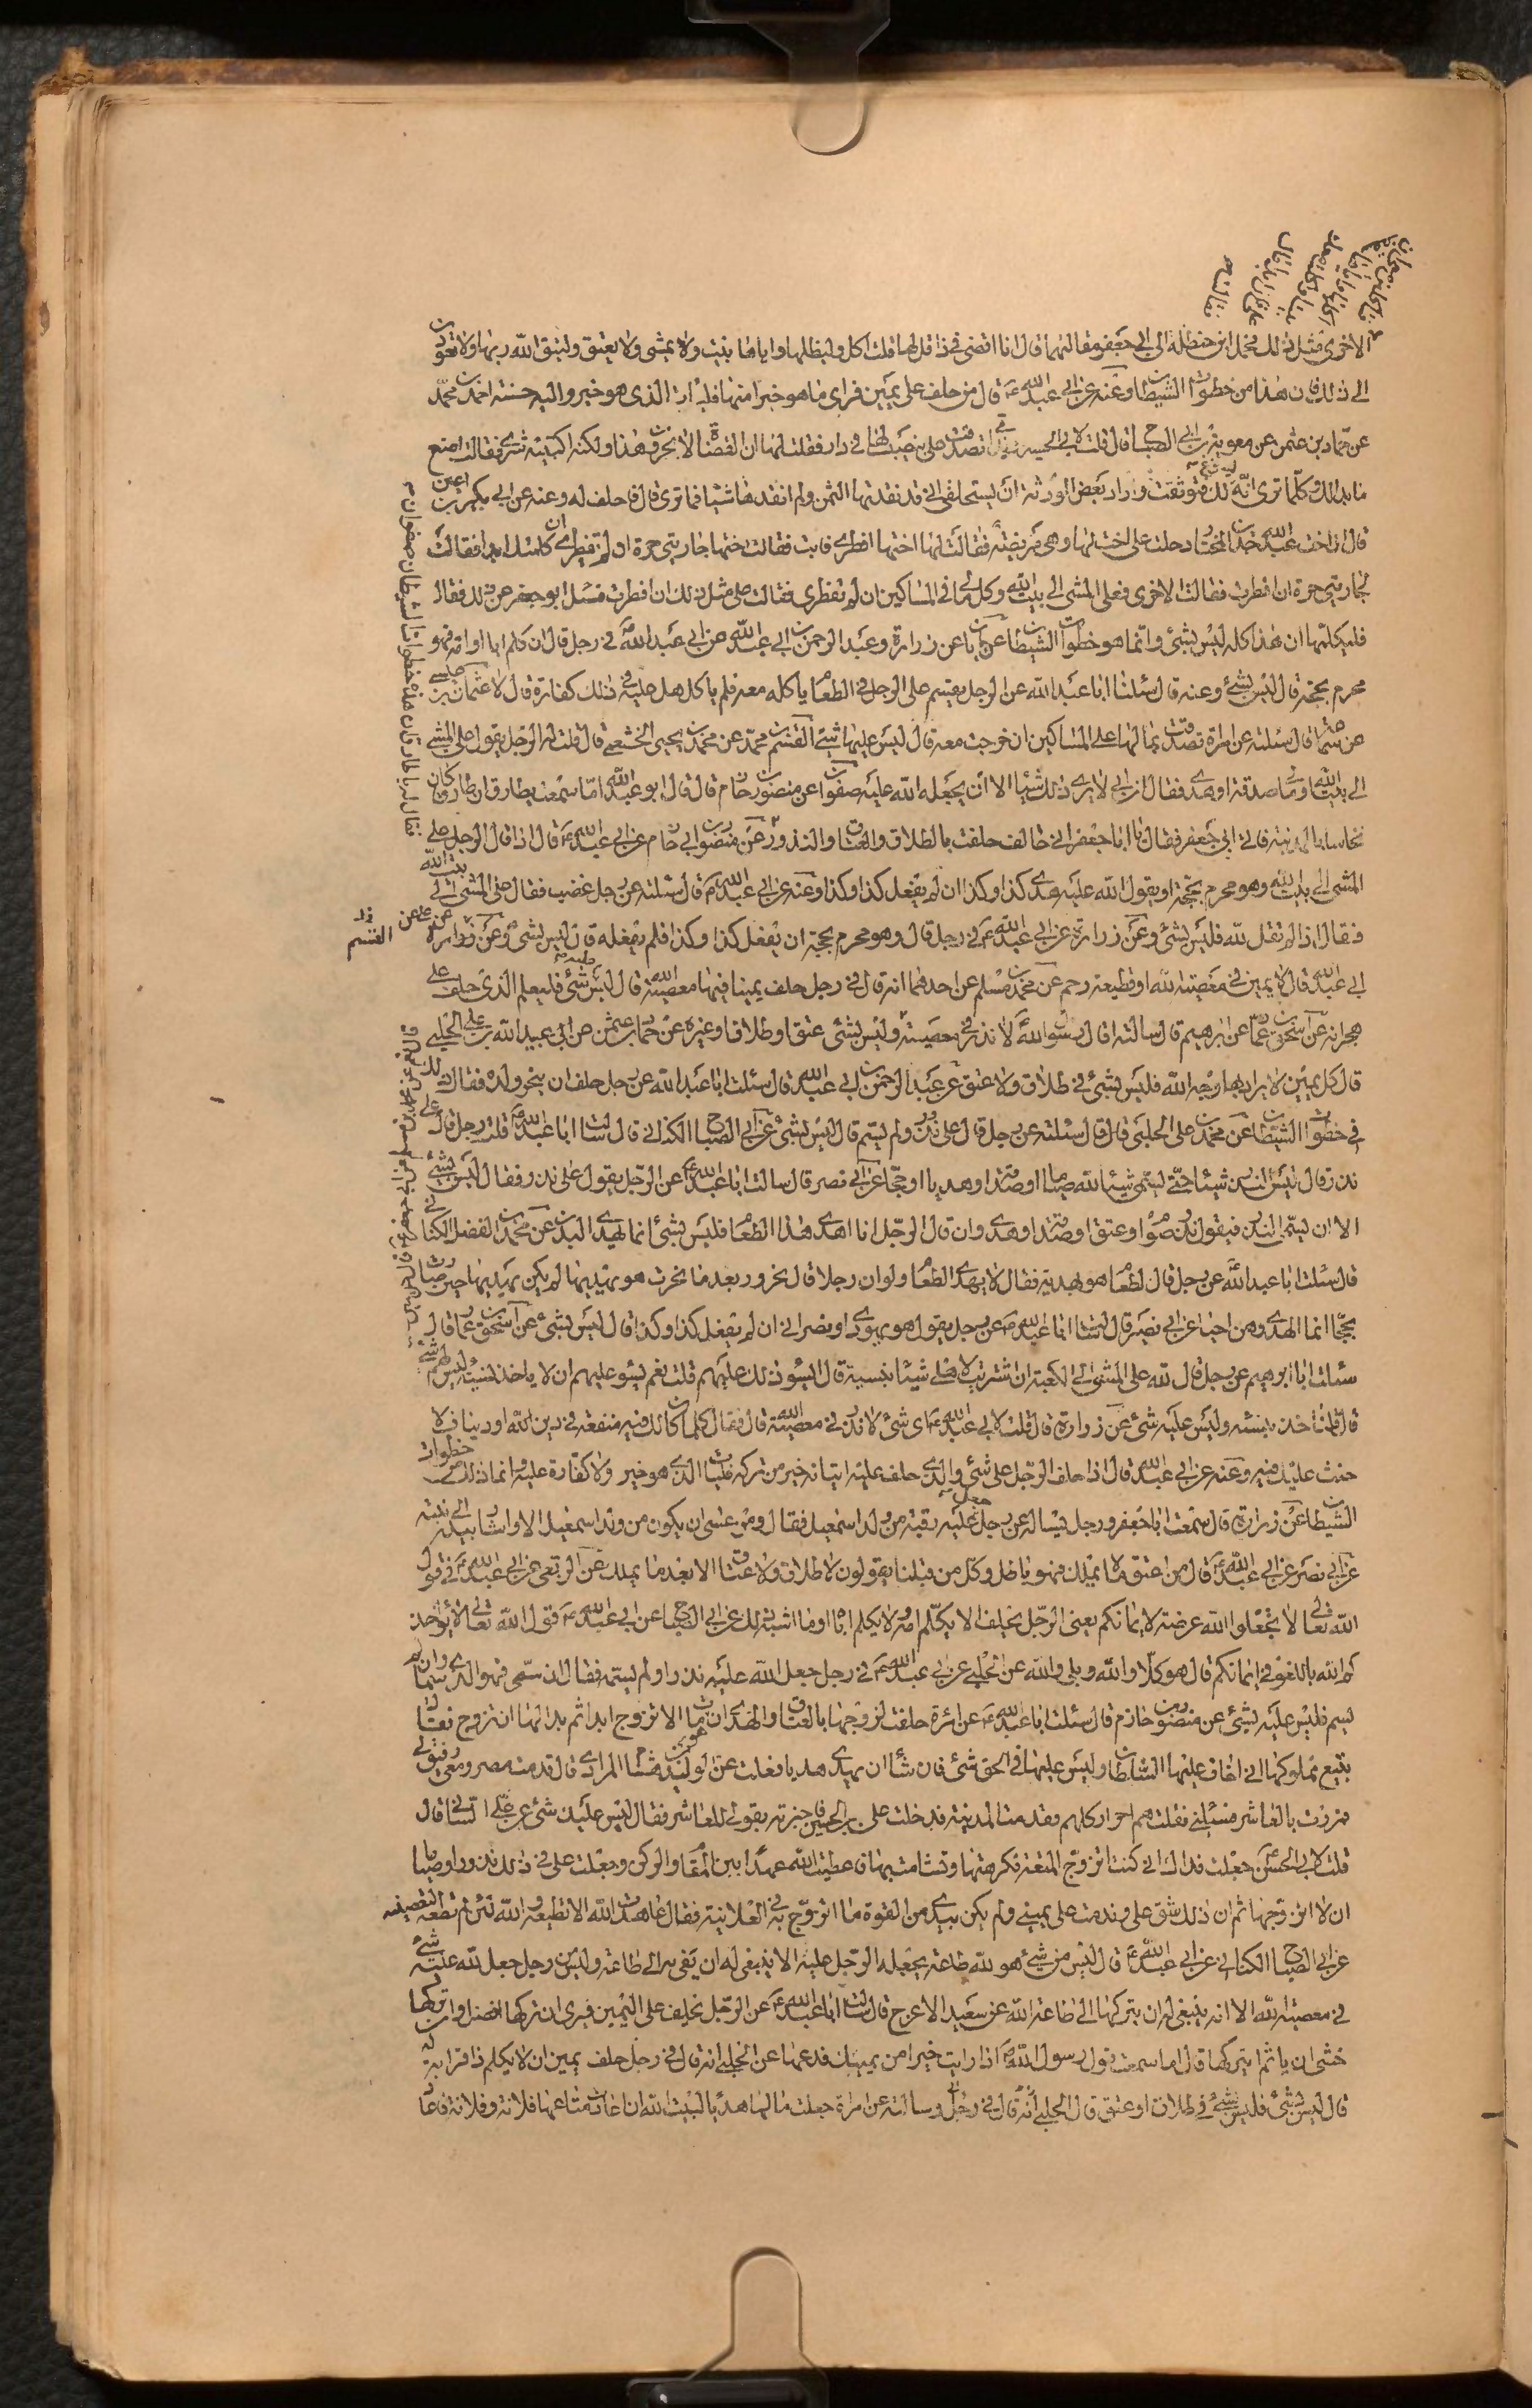 الاخرى مثل ذلك فحمل ابن حنظلة الى ابي جعفر مقالتهما قال انا اقضى في ذا قل لها فلتأكل وليظلها واياها بيت ولا تمشى ولا تعتق ولتتق الله ربها ولا تعود
الى ذلك فان هذا من خطوات الشيطان وعنه عن ابي عبد الله قال من حلف على يمين فراى ما هو خير منها فليأت الذى هو خير وله حسنة احمد بن محمد
عن حماد بن عثمن عن معوية بن ابي الصباح قال قلت لابي الحسن امى تصدقت على بنصيب لها في دار فقلت لها ان القضاة لا يجيزون هذا ولكنه اكتبيه شرى فقالت اصنع
ما بدا لك وكلما ترى انه يسوغ لك فتوثقت واراد بعض الورثة ان يستحلفنى انى قد نقدتها الثمن ولم انقدها شيئا فما ترى قال فاحلف له وعنه عن ابي بكير بن اعين
قال ان اخت عبد الله حمدان المختار دخلت على اخت لها وهى مريضة فقالت لها اختها افطرى فابت فقالت اختها جاريتى حرة ان لم تفطرى ان كلمتك ابدا فقالت
فجاريتى حرة ان افطرت فقالت الاخرى فعلى المشى الى بيت الله وكل مالى في المساكين ان لم تفطرى فقالت على مثل ذلك ان افطرت فسئل ابو جعفر عن ذلك فقال
فليكلمها ان هذا كله ليس بشئ وانما هو خطوات الشيطان عن ابان عن زرارة وعبد الرحمن بن ابي عبد الله عن ابي عبد الله في رجل قال ان كلم اباه او امه فهو
محرم بحجة قال ليس بشئ وعنه قال سئلت ابا عبد الله عن الرجل يقسم على الرجل في الطعام يأكله معه فلم يأكل هل عليه في ذلك كفارة قال لا عثمان بن عيسى
عن سماعة قال سئلته عن امراة تصدقت بمالها على المساكين ان خرجت معه قال ليس عليها شئ القسم بن محمد عن محمد بن يحيى الخثعمى قال قلت له الرجل يقول على المشى
الى بيت الله او مالى صدقة او هدى فقال ان ابي لا يرى ذلك شيئا الا ان يجعله الله عليه صفوان عن منصور بن حازم قال قال ابو عبد الله اما سمعت بطارق ان طارقا كان
نخاسا بالمدينة فاتى ابي جعفر فقال يا ابا جعفر انى هالك حلفت بالطلاق والعتاق والنذور عن منصور بن حازم عن ابي عبد الله قال اذا قال الرجل على
المشى الى بيت الله وهو محرم بحجة او يقول لله عليه هدى كذا وكذا ان لم يفعل كذا وكذا وعنه عن ابي عبد الله قال سئلته عن رجل غضب فقال على المشى الى بيت الله
فقال اذا لم يقل لله فليس بشئ وعن زرارة عن ابي عبد الله في رجل قال وهو محرم بحجة ان يفعل كذا وكذا فلم يفعله قال ليس بشئ وعن زرارة
ابي عبد الله قال لا يمين في معصية الله او قطيعة رحم عن محمد بن مسلم عن احدهما انه قال في رجل حلف يمينا فيها معصية الله قال ليس عليه شئ فليعلم الذى حلف على
هجرانه عن اسحق بن عمار عن ابي ابرهيم قال سالته اقال رسول الله لا نذر في معصية وليس بشئ عتق او طلاق او غيره عن حماد بن عثمن عن ابي عبيد الله بن على الحلبى
قال كل يمين لا يراد بها وجه الله فليس بشئ في طلاق ولا عتق عن عبد الرحمن بن ابي عبد الله قال سئلت ابا عبد الله عن رجل حلف ان ينحر ولده فقال ذلك
في خطوات الشيطان عن محمد بن على الحلبى قال قال سئلته عن رجل قال على نذر ولم يسم قال ليس بشئ عن ابي الصباح الكنانى قال سالت ابا عبد الله قلت رجل قال على
نذر قال ليس النذر شيئا حتى يسمى شيئا لله صياما او صدقة او هديا او حجا عن ابي نصير قال سالت ابا عبد الله عن الرجل يقول على نذر فقال ليس بشئ
الا ان يسمى النذر فيقول نذر صوم او عتق او صدقة او هدى وان قال الرجل انا اهدى هذا الطعام فليس بشئ انما تهدى البدن عن محمد بن الفضل الكنانى
قال سئلت ابا عبد الله عن رجل قال لطعام هو يهديه فقال لا يهدى الطعام ولو ان رجلا قال لجزور بعد ما نحرت هو يهديها لم يكن يهديها حين صارت
لحما انما الهدى وهن احياء عن ابي بصير قال سئلت ابا عبد الله عن رجل يقول هو يهودى او نصرانى ان لم يفعل كذا وكذا قال ليس بشئ عن اسحق بن عمار قال
سئلت ابا ابرهيم عن رجل قال لله على المشى الى الكعبة ان اشتريت لاهلى شيئا بنسية قال ايشق ذلك عليهم قلت نعم يشق عليهم ان لا ياخذ نسية ليس لهم شئ
قال فليأخذ بنسية وليس عليه شئ عن زرارة قال قلت لابي عبد الله اى شئ لا نذر في معصية الله قال فقال كلما كان لك فيه منفعة في دين الله او دنيا فلا
حنث عليك فيه وعنه عن ابي عبد الله قال اذا حلف الرجل على شئ والذى حلف عليه اتيانه خير من تركه فليأت الذى هو خير ولا كفارة عليه وانما ذلك من خطوات
الشيطان عن زرارة قال سمعت ابا جعفر ورجل يساله عن رجل جعل عليه رقبة من ولد اسمعيل فقال ومن عسى ان يكون من ولد اسمعيل الا واشار بيده الى بنيه
عن ابي نصر عن ابي عبد الله قال من اعتق ما لا يملك فهو باطل وكل من قبلنا يقولون لا طلاق ولا عتاق الا بعد ما يملك عن الربعى عن ابي عبد الله في قول
الله تعالى لا تجعلوا الله عرضة لايمانكم يعنى الرجل يحلف الا يكلم امه ولا يكلم اباه او ما اشبه ذلك عن ابي الصباح عن ابي عبد الله قول الله تعالى لا يؤاخذ
كم الله باللغو في ايمانكم قال هو كلا والله وبلى والله عن الحلبى عن ابي عبد الله في رجل جعل لله عليه نذرا ولم يسمه فقال ان سمى فهو الذى سمى وان لم
يسم فليس عليه شئ عن منصور بن حازم قال سئلت ابا عبد الله عن امرة حلفت لزوجها بالعتاق والهدى ان مات الا تزوج ابدا ثم بدا لها ان تزوج فقال
تبيع مملوكها انى اخاف عليها الشيطان وليس عليها في الحق شئ فان شاء ان يهدى هديا فعلت عن الوليد بن هشام المرادى قال قدمت مصر ومعى رقيق لى
فمررت بالعاشر فسئلنى فقلت هم احرار كلهم فقدمت المدينة فدخلت على ابي الحسن فاخبرته بقولى للعاشر فقال ليس عليك شئ عن على السائى قال
قلت لابي الحسن جعلت فداك انى كنت اتزوج المتعة فكرهتها وتشامت بها فاعطيت الله عهدا بين المقام والركن وجعلت على في ذلك نذورا وصياما
ان لا اتزوجها ثم ان ذلك شق على وندمت على يمينى ولم يكن بيدى من القوة ما اتزوج به في العلانية فقال عاهدت الله الا تطيعه والله لئن لم تطعه لتعصينه
عن ابي الصباح الكنانى عن ابي عبد الله قال ليس من شئ هو لله طاعة يجعله الرجل عليه الا ينبغى له ان يفى به الى طاعة وليس رجل جعل لله عليه شئ
في معصية الله الا انه ينبغى له ان يتركها الى طاعة الله عن سعيد الاعرج قال سالت ابا عبد الله عن الرجل يحلف على اليمين فيرى ان تركها افضل وان تركها
خشى ان ياثم ايتركها قال اما سمعت قول رسول الله اذا رايت خيرا من يمينك فدعها عن الحلبى انه قال في رجل حلف يمين ان لا يكلم ذا قرابة له
قال ليس بشئ فليس بشئ في طلاق او عتق قال الحلبى انه قال في رجل وسالته عن امراة جعلت مالها هديا لبيت الله ان اعارت متاعها فلانة وفلانة فاعار